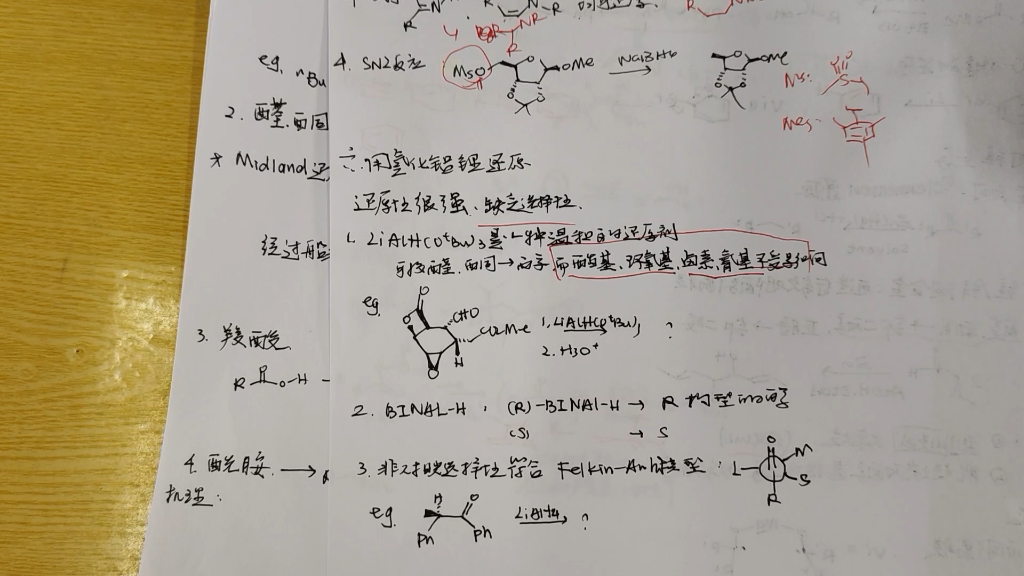 eg. nBu
2. 醛.酮
* Midland还
经过船
3. 羧酸.
R O-H
4. 酰胺. →
机理:
4. SN2反应
MsO O OMe NaBH4 O OMe
Ms:
Mes:
六.用氢化铝锂还原.
还原性很强、缺乏选择性.
1. LiAlH(OtBu)3是一种温和的还原剂
可将醛.酮→醇,而酯基、环氧基、卤素、腈基不受影响
eg. O O CHO CO2Me H O 1. LiAlH(OtBu)3 ?
2. H3O+
2. BINAL-H , (R)-BINAl-H → R 构型的醇
(S) → S
3. 非对映选择性符合 Felkin-Anh模型: O M L S R
eg. H O Ph Ph LiAlH4 ?